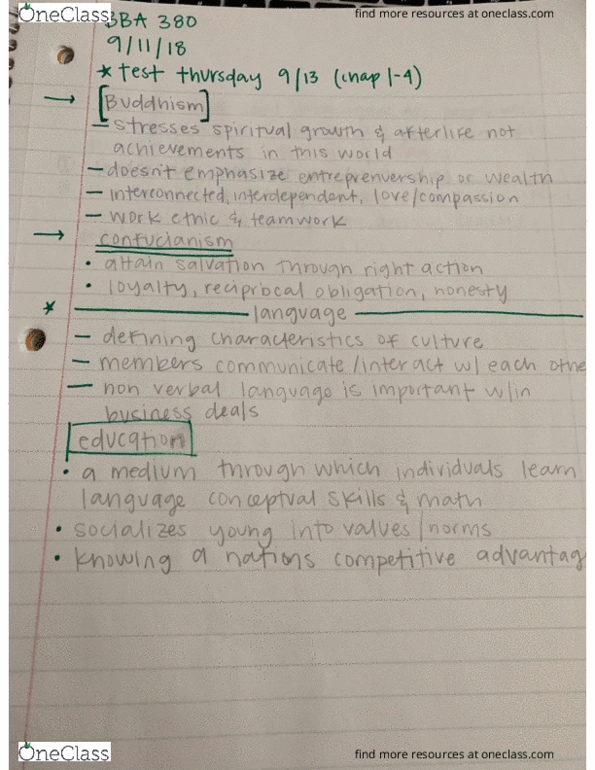 OneClass
find more resources at oneclass.com
BBA 380
9/11/18
* test thursday 9/13 (chap 1-4)
→ [Buddhism]
- stresses spiritual growth & afterlife not
achievements in this world
- doesn't emphasize entreprenvership or wealth
- interconnected, interdependent, love/compassion
- work ethic & teamwork
→ confucianism
• attain salvation through right action
• loyalty, reciprocal obligation, honesty
* language
- defining characteristics of culture
- members communicate/interact w/ each othe
- non verbal language is important w/in
business deals
education
• a medium through which individuals learn
language conceptual skills & math
• socializes young into values/norms
• knowing a nations competitive advantag
OneClass
find more resources at oneclass.com